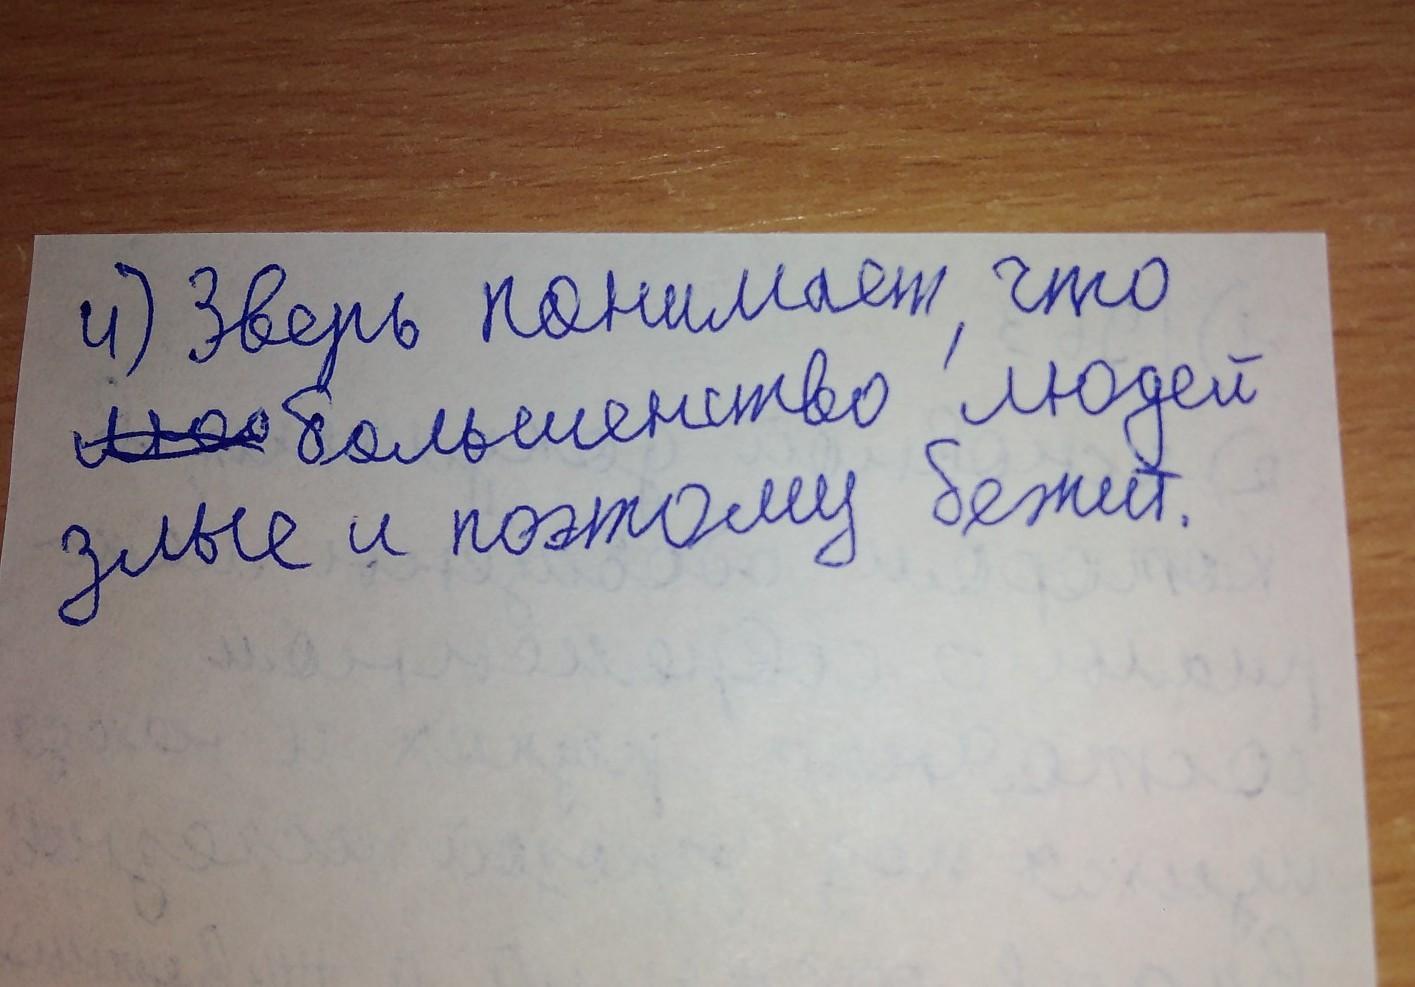 4) Зверь понимает, что
большенство людей
злые и поэтому бежит.